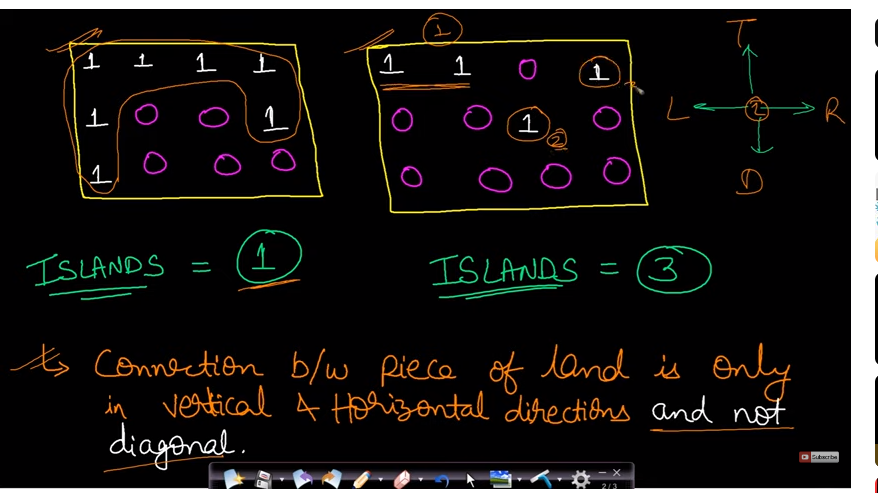 1
T
1 1 1 1
1 0 0 1
1 0 0 0
1 1 0 1
0 0 1 0
2
0 0 0 0
L 1 R
D
ISLANDS = 1
ISLANDS = 3
Connection b/w piece of land is only
in vertical & Horizontal directions and not
diagonal.
Subscribe
2/3